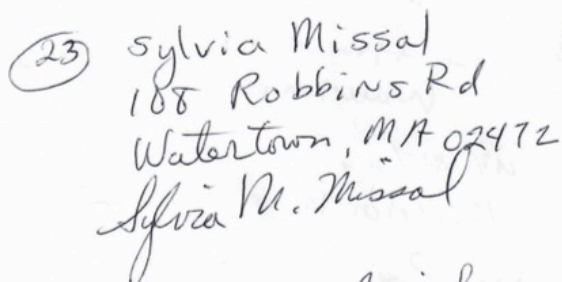 23 Sylvia Missal
188 Robbins Rd
Watertown, MA 02472
Sylvia M. Missal